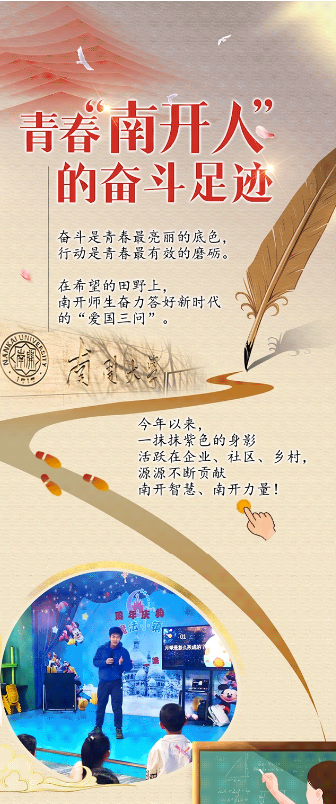 青春“南开人”
的奋斗足迹
奋斗是青春最亮丽的底色，
行动是青春最有效的磨砺。
在希望的田野上，
南开师生奋力答好新时代
的“爱国三问”。
NANKAI UNIVERSITY
南開
1919
南開大學
今年以来，
一抹抹紫色的身影
活跃在企业、社区、乡村，
源源不断贡献
南开智慧、南开力量！
周年庆典
01